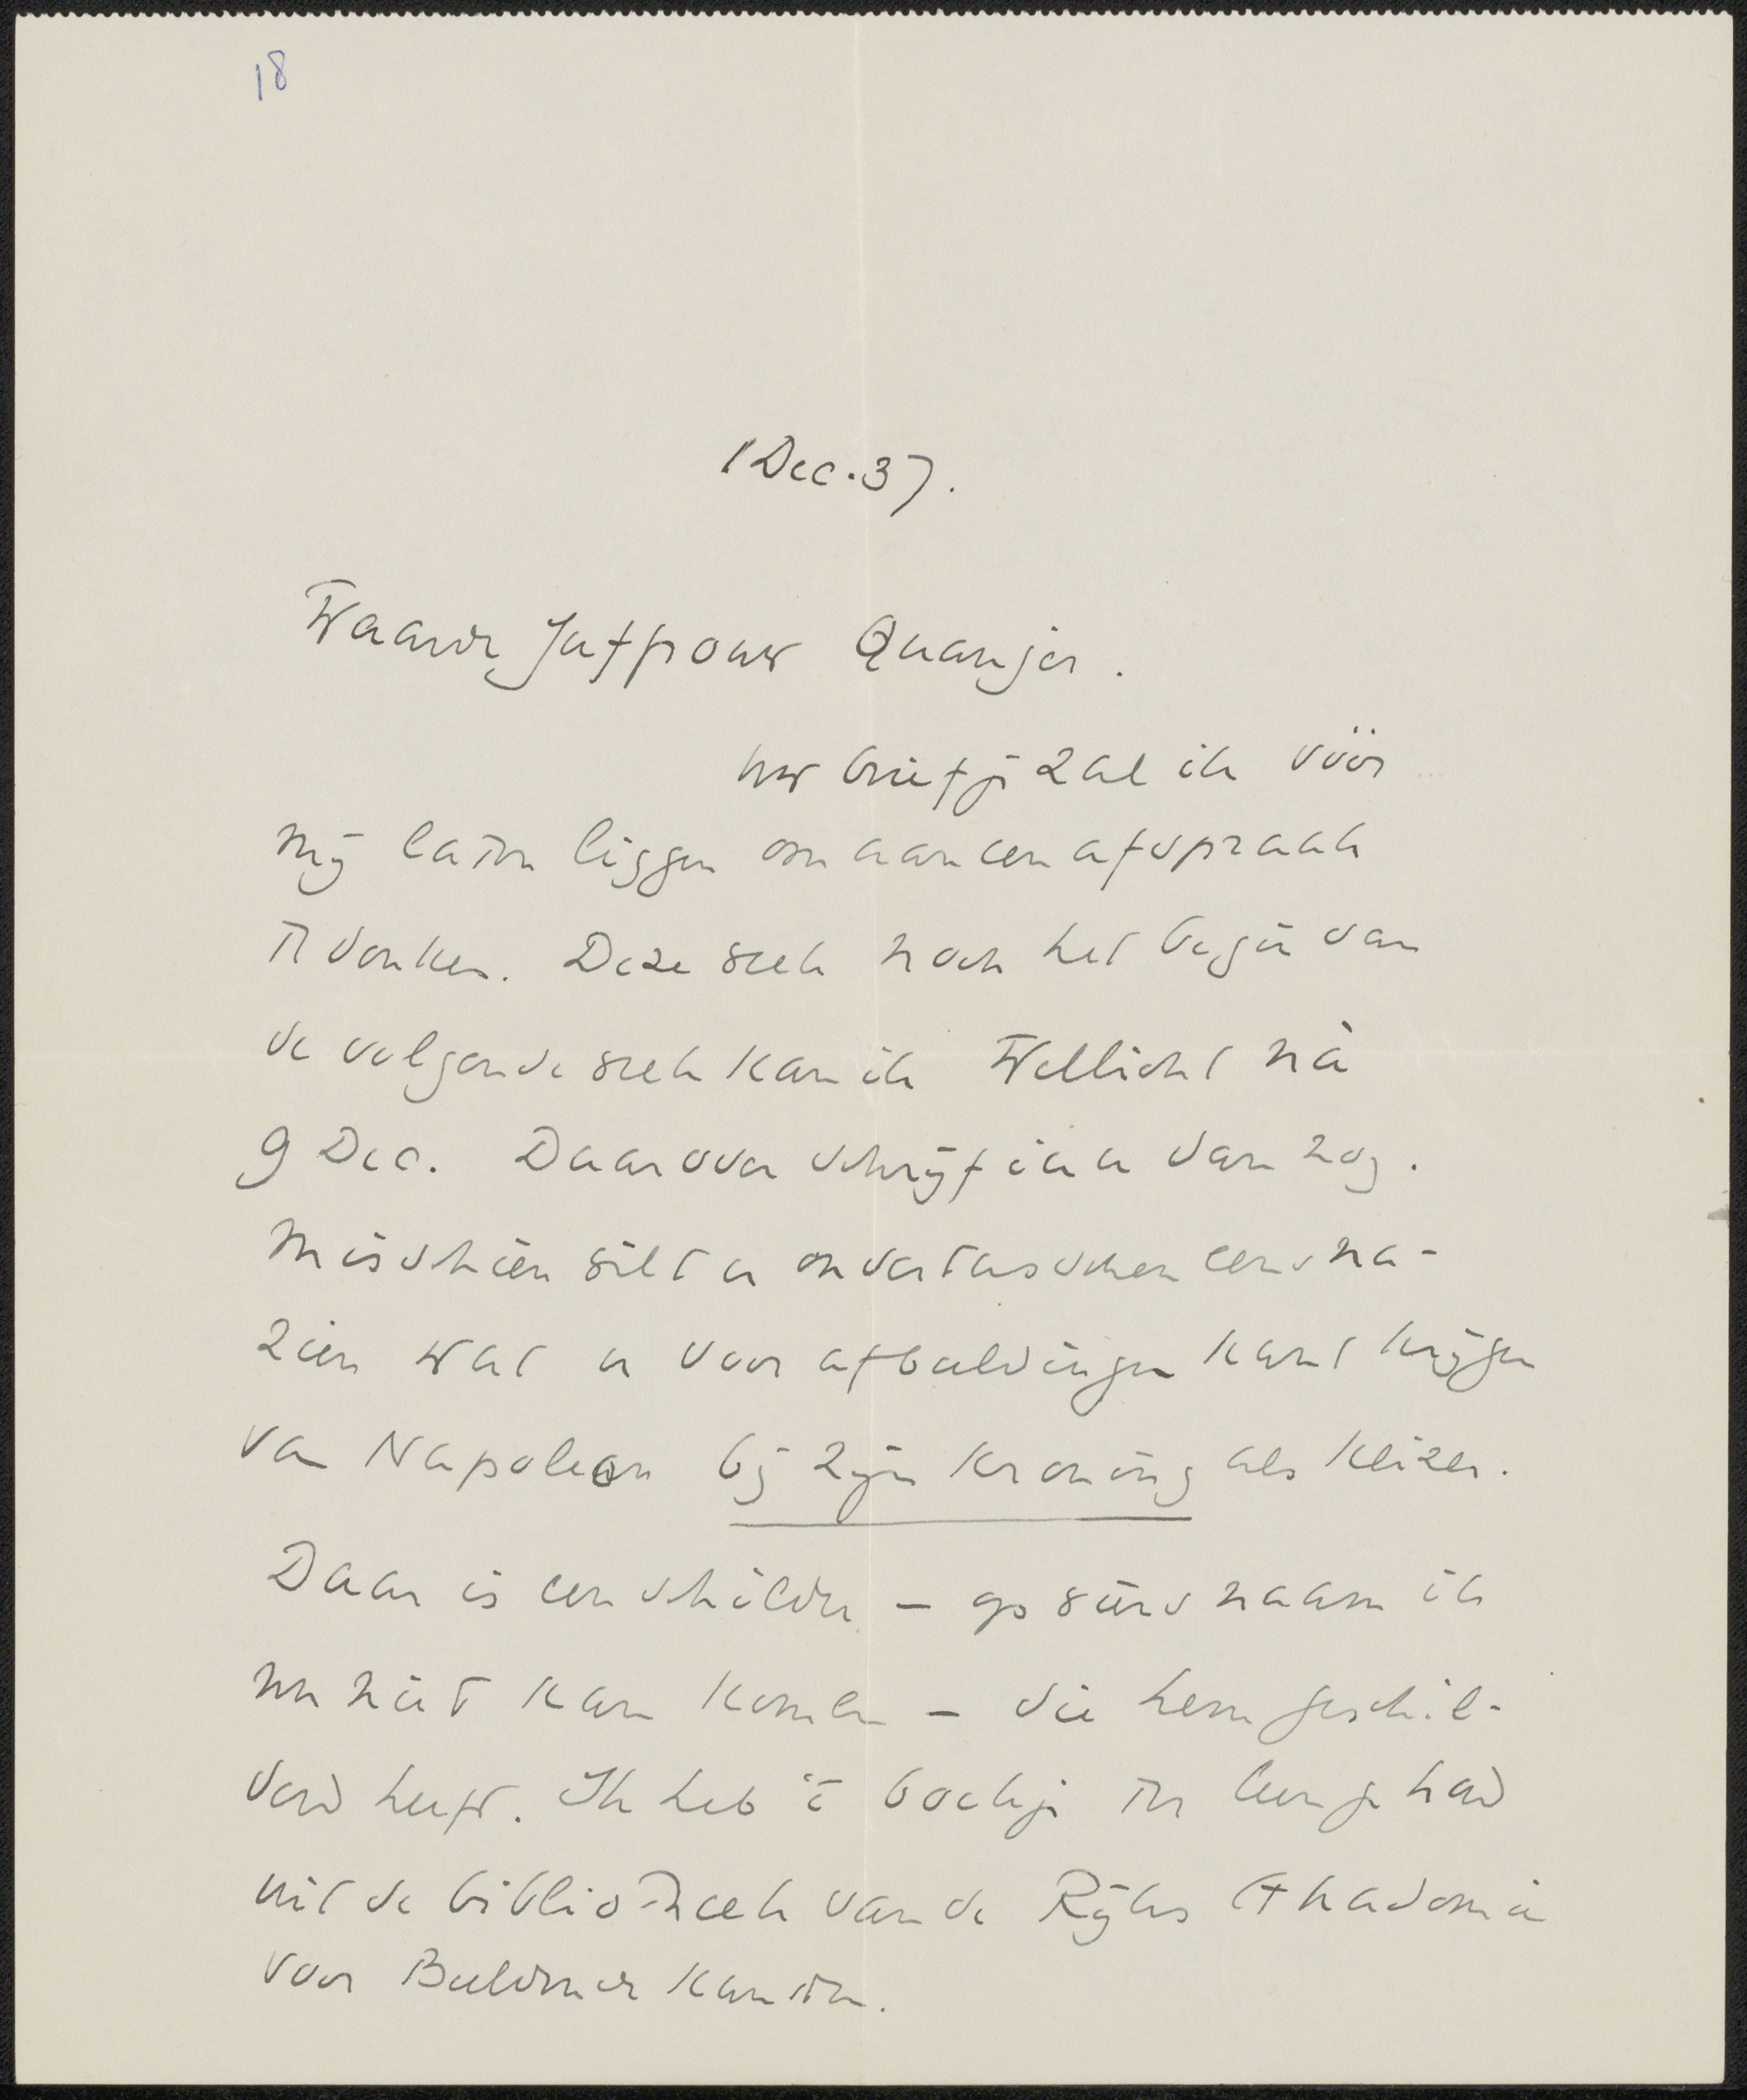 18
1 Dec. 37.
Waarde Juffrouw Quanjer.
Uw briefje zal ik vóór
mij laten liggen om aan een afspraak
te denken. Deze week noch het begin van
de volgende week kan ik. Wellicht ná
9 Dec. Daarover schrijf ik u dan nog.
Misschien wilt u ondertusschen eens na-
zien wat u voor afbeeldingen kunt krijgen
van Napoleon bij zijn kroning als keizer.
Daar is een schilder – op wiens naam ik
nu niet kan komen – die hem geschil-
derd heeft. Ik heb 't boekje ter leen gehad
uit de bibliotheek van de Rijks Akademie
voor Beeldende Kunsten.